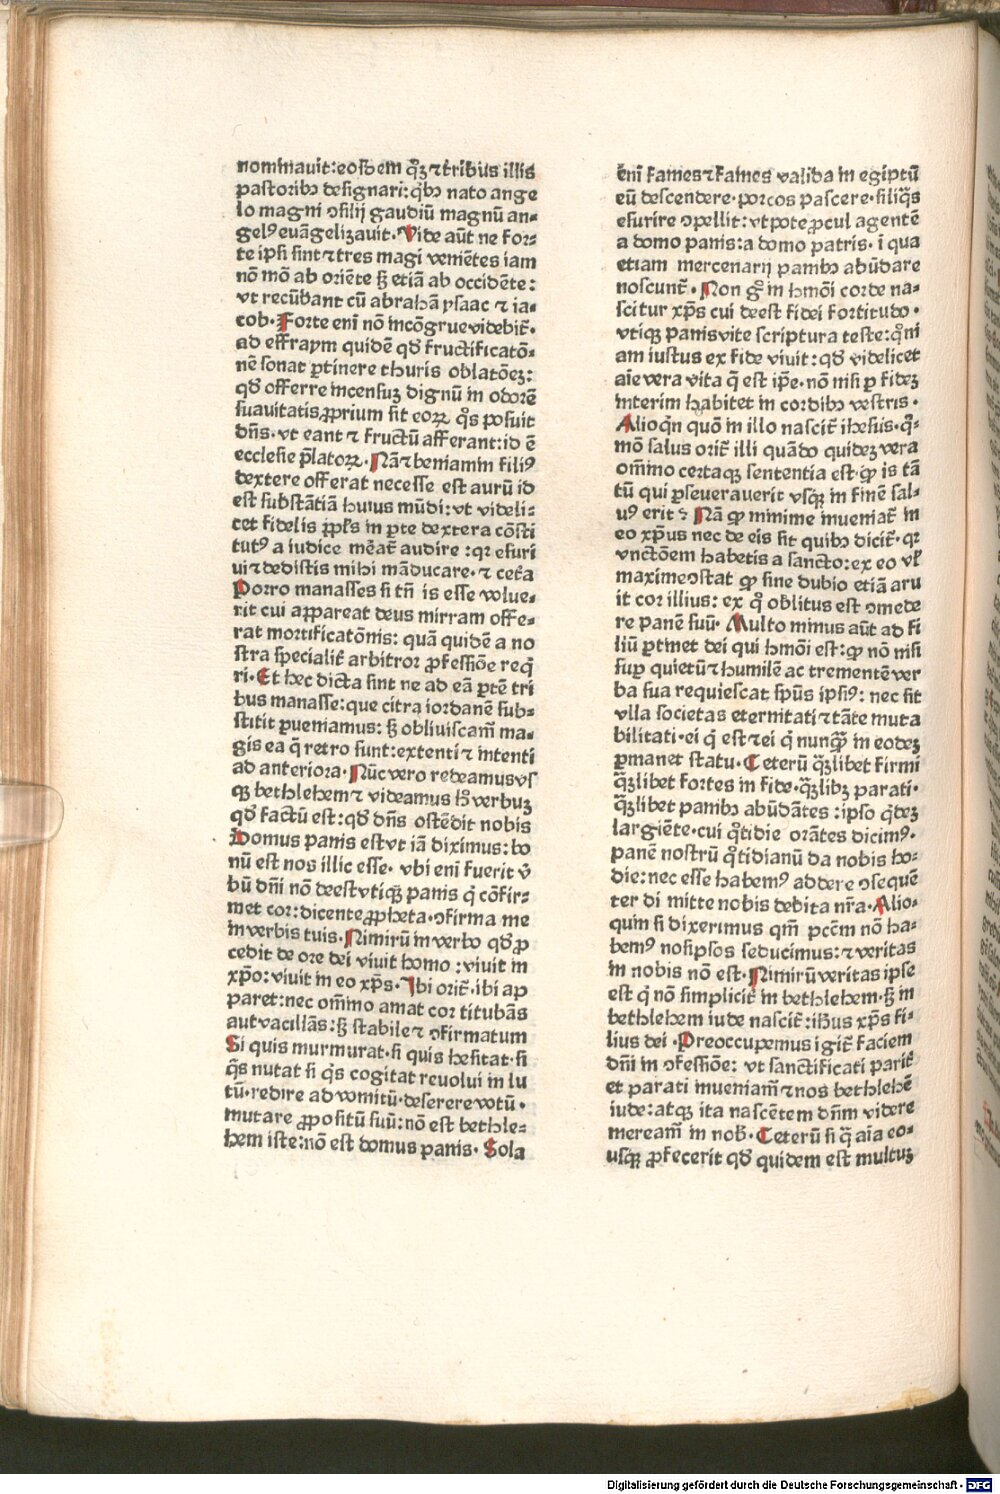 nominauit: eosdem qȝ ⁊ tribus illis
pastoribꝫ designari: qͥbꝫ nato ange
lo magni ꝯsilij gaudiū magnū an⸗
gelꝰ euāgelizauit. Vide aūt ne for⸗
te ipsi sint ⁊ tres magi veniētes iam
nō mō ab oriēte sꝫ etiā ab occidēte:
vt recūbant cū abrahā ysaac ⁊ ia⸗
cob. Forte eni nō incōgrue videbit̄.
ad effraym quidē qd̄ fructificatō⸗
nē sonat ꝑtinere thuris oblatōeꝫ:
qd̄ offerre incensuꝫ dignū in odorē
suauitatis ꝓprium sit eoꝝ qͦs posuit
dn̄s. vt eant ⁊ fructū afferant: id ē
ecclesie p̄latoꝝ. Nā ⁊ beniamin filiꝰ
dextere offerat necesse est aurū id
est substātiā huius mūdi: vt videli⸗
cet fidelis ppl̄s in ꝑte dextera cōsti
tutꝰ a iudice meāt̄ audire: qꝛ esuri
ui ⁊ dedistis mihi māducare. ⁊ cet̄a
Porro manasses si tn̄ is esse volue⸗
rit cui appareat deus mirram offe⸗
rat mortificatōnis: quā quidē a no
stra specialit̄ arbitror ꝓfessiōe req̄
ri. Et hec dicta sint ne ad eā ꝑtē tri
bus manasse: que citra iordanē sub⸗
stitit ꝑueniamus: sꝫ obliuiscam̄ ma⸗
gis ea q̄ retro sunt: extenti ⁊ intenti
ad anteriora. Nūc vero redeamus vs
qꝫ bethlehem ⁊ videamus hͦ verbuꝫ
qd̄ factū est: qd̄ dn̄s ostēdit nobis
Domus panis est vt iā diximus: bo
nū est nos illic esse. vbi eni fuerit v̄
bū dn̄i nō deest vtiqꝫ panis q̇ cōfir⸗
met cor: dicente ꝓpheta. ꝯfirma me
in verbis tuis. Nimirū in verbo qd̄ ꝓ
cedit de ore dei viuit homo: viuit in
xp̄o: viuit in eo xp̄s. Ibi orit̄. ibi ap
paret: nec om̄ino amat cor titubās
aut vacillās: sꝫ stabile ⁊ ꝯfirmatum
Si quis murmurat. si quis hesitat. si
qͥs nutat si qͥs cogitat reuolui in lu
tū. redire ad vomitū. deserere votū.
mutare ꝓpositū suū: nō est bethle⸗
hem iste: nō est domus panis. Sola
eni fames ⁊ fames valida in egiptū
eū descendere. porcos pascere. siliqͥs
esurire ꝯpellit: vtpote ꝓcul agentē
a domo panis: a domo patris. ī qua
etiam mercenarij panibꝫ abūdare
noscunt̄. Non gͦ in hmōi corde na⸗
scitur xp̄s cui deest fidei fortitudo.
vtiqꝫ panis vite scriptura teste: qm̄
iam iustus ex fide viuit: qd̄ videlicet
aīe vera vita q̄ est ip̄e. nō nisi ꝑ fideꝫ
interim habitet in cordibꝫ vestris.
Alioqn quō in illo nascit̄ ihesus. qͦ⸗
mō salus orit̄ illi quādo quideꝫ vera
om̄ino certaqꝫ sententia est. ꝙ is tā
tū qui ꝑseuerauerit vsqꝫ in finē sal⸗
uꝰ erit? Nā ꝙ minime inueniat̄ in
eo xp̄us nec de eis sit quibꝫ dicit̄. qꝛ
vnctōem habetis a sancto: ex eo vl̄
maxime ꝯstat ꝙ sine dubio etiā aru
it cor illius: ex qͦ oblitus est ꝯmede
re panē suū. Multo minus aūt ad fi
liū ꝑtinet dei qui hmōi est: ꝙ nō nisi
suꝑ quietū ⁊ humilē ac trementē ver
ba sua requiescat spūs ipsiꝰ: nec sit
vlla societas eternitati ⁊ tāte muta
bilitati. ei q̇ est ⁊ ei q̇ nunqꝫ in eodeꝫ
ꝑmanet statu. Ceterū qꝫlibet firmi
qꝫlibet fortes in fide. qꝫlibꝫ parati.
qꝫlibet panibꝫ abūdātes: ipso qͥdeꝫ
largiēte. cui qͦtidie orātes dicimꝰ.
panē nostrū qͦtidianū da nobis ho⸗
die: nec esse habemꝰ addere ꝯsequē
ter dimitte nobis debita nr̄a. Alio⸗
quin si dixerimus qm̄ pccm̄ nō ha⸗
bemꝰ nosipsos seducimus: ⁊ veritas
in nobis nō est. Nimirū veritas ipse
est q̇ nō simplicit̄ in bethlehem. sꝫ in
bethlehem iude nascit̄: ihūs xp̄s fi⸗
lius dei. Preoccupemus igit̄ faciem
dn̄i in ꝯfessiōe: vt sanctificati parit̄
et parati inueniam̄ ⁊ nos bethlehē
iude: atqꝫ ita nascētem dn̄m videre
meream̄ in nob̄. Ceterū si q̄ aīa eo⸗
usqꝫ ꝓfecerit qd̄ quidem est multuꝫ
Digitalisierung gefördert durch die Deutsche Forschungsgemeinschaft · DFG